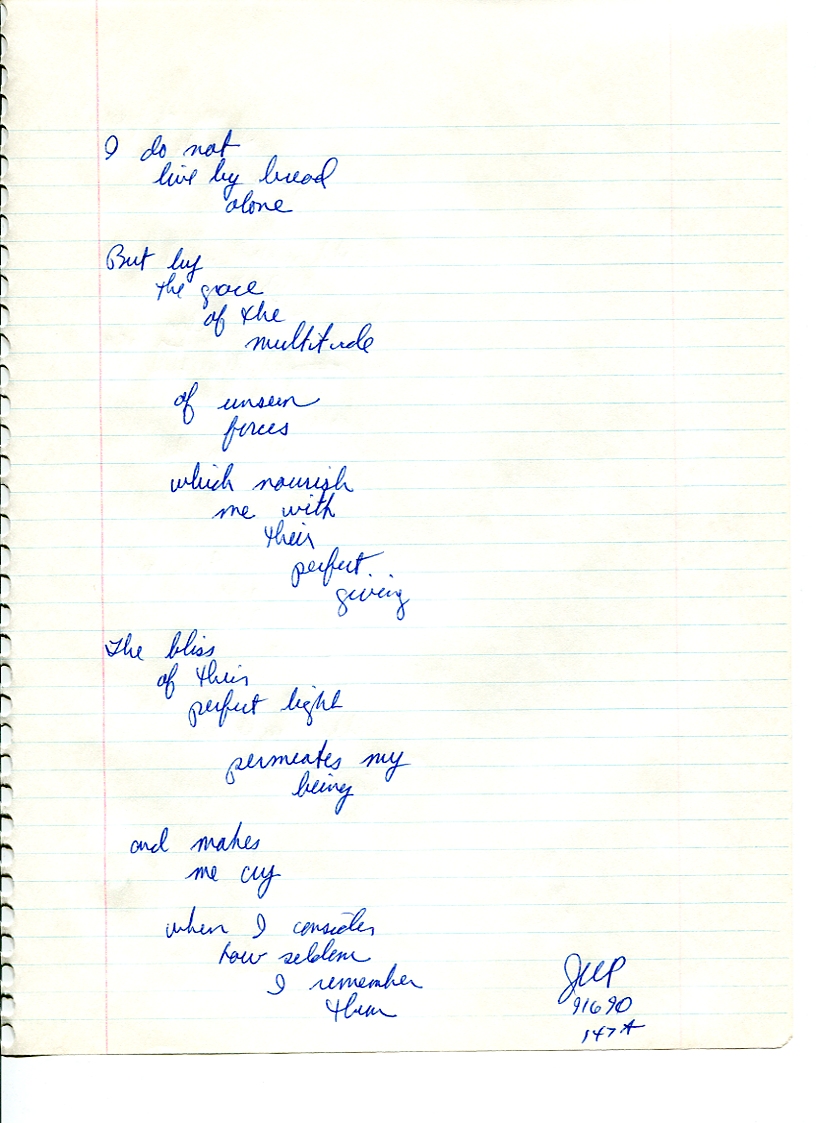 I do not
live by bread
alone
But by
the grace
of the
multitude
of unseen
forces
which nourish
me with
their
perfect
giving
The bliss
of their
perfect light
permeates my
being
and makes
me cry
when I consider
how seldom
I remember
them
91690
147A